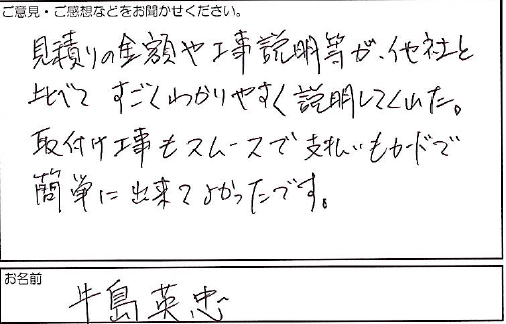 ご意見・ご感想などをお聞かせください。
見積りの金額や工事説明等が、他社と
比べて すごくわかりやすく説明してくれた。
取付け工事もスムースで支払いもカードで
簡単に出来てよかったです。
お名前
牛島英忠